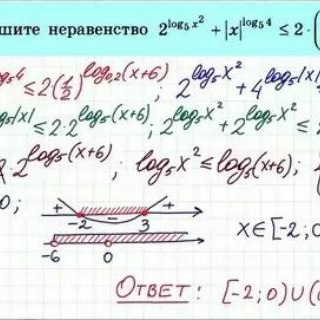 шите неравенство 2^{log₅ x²} + |x|^{log₅ 4} ≤ 2 · (
log₅4 ≤ 2(1/2)^{log₀,₂(x+6)} ; 2^{log₅x²} + 4^{log₅|x|}
log₅|x| ≤ 2·2^{log₅(x+6)} ; 2^{log₅x²} + 2^{log₅x²} ≤
2^{log₅(x+6)} ; log₅x² ≤ log₅(x+6) ;
0 ;
+ − +
−2 3
−6 0
x∈[-2; 0
Ответ: [-2; 0)∪(